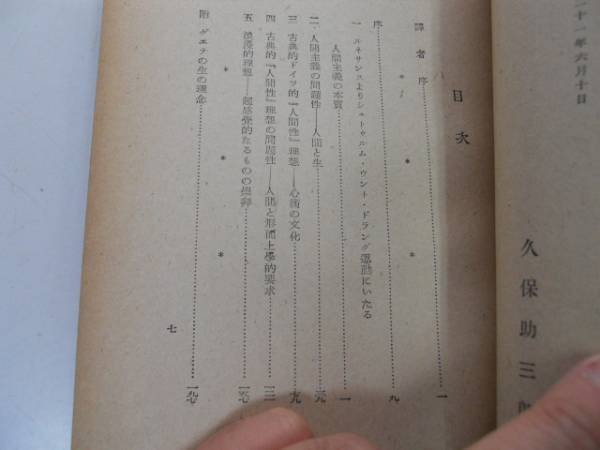 二十一年六月十日
久保助三郎
目次
譯者序……一
*　*　*
序……九
一 ルネサンスよりシュトゥルム・ウント・ドラング運動にいたる
人間主義の本質……一
二 人間主義の問題性——人間と生……
三 古典的ドイツ的『人間性』理想——心術の文化……
四 古典的『人間性』理想の問題性——人間と形而上學的要求……
五 浪漫的理想——超感覺的なるものの
*　*　*
附 ゲエテの生の理念……
七